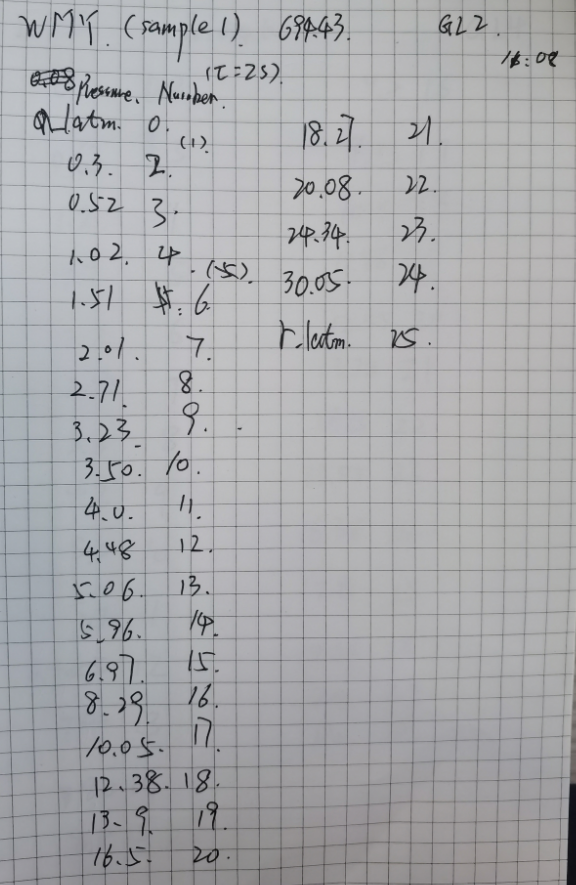 WMY. (sample 1). 694.43. GL2.
16:08
(τ=2s).
Pressure. Number.
1atm. 0.
(1).
0.3. 2.
0.52 3.
1.02. 4.
(5).
1.51 6.
2.01. 7.
2.71. 8.
3.23. 9.
3.50. 10.
4.0. 11.
4.48 12.
5.06. 13.
5.96. 14.
6.97. 15.
8.29. 16.
10.05. 17.
12.38. 18.
13.9. 19.
16.5. 20.
18.27. 21.
20.08. 22.
24.34. 23.
30.05. 24.
r-1atm. 25.